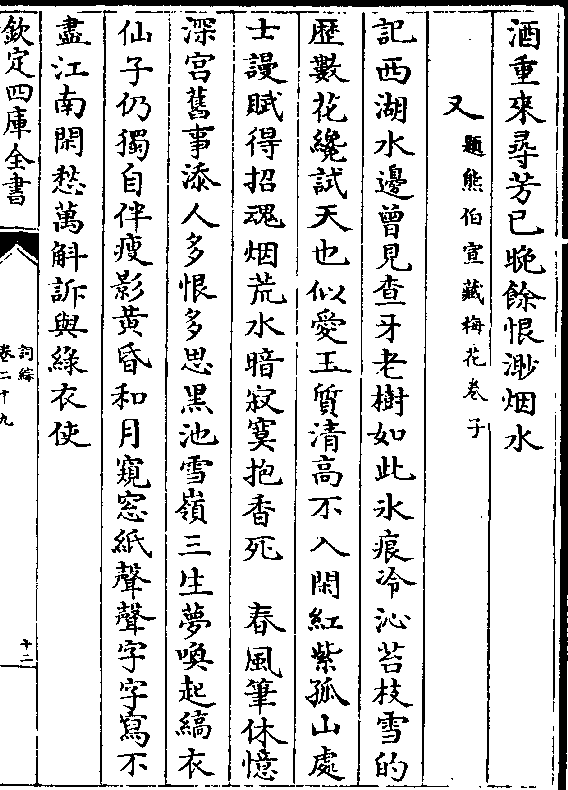 酒重來尋芳已晩餘恨渺烟水
又題熊伯宣藏梅花卷子
記西湖水邊曾見查牙老樹如此氷痕冷沁苔枝雪的
歴數花纔試天也似愛玉質清高不入閑紅紫孤山處
士謾賦得招魂烟荒水暗寂寞抱香死　春風筆休憶
深宫舊事添人多恨多思黒池雪嶺三生夢喚起縞衣
仙子仍獨自伴瘦影黄昏和月窺窓紙聲聲字字寫不
盡江南閑愁萬斛訴與綠衣使
欽定四庫全書
詞綜
卷二十九
十二